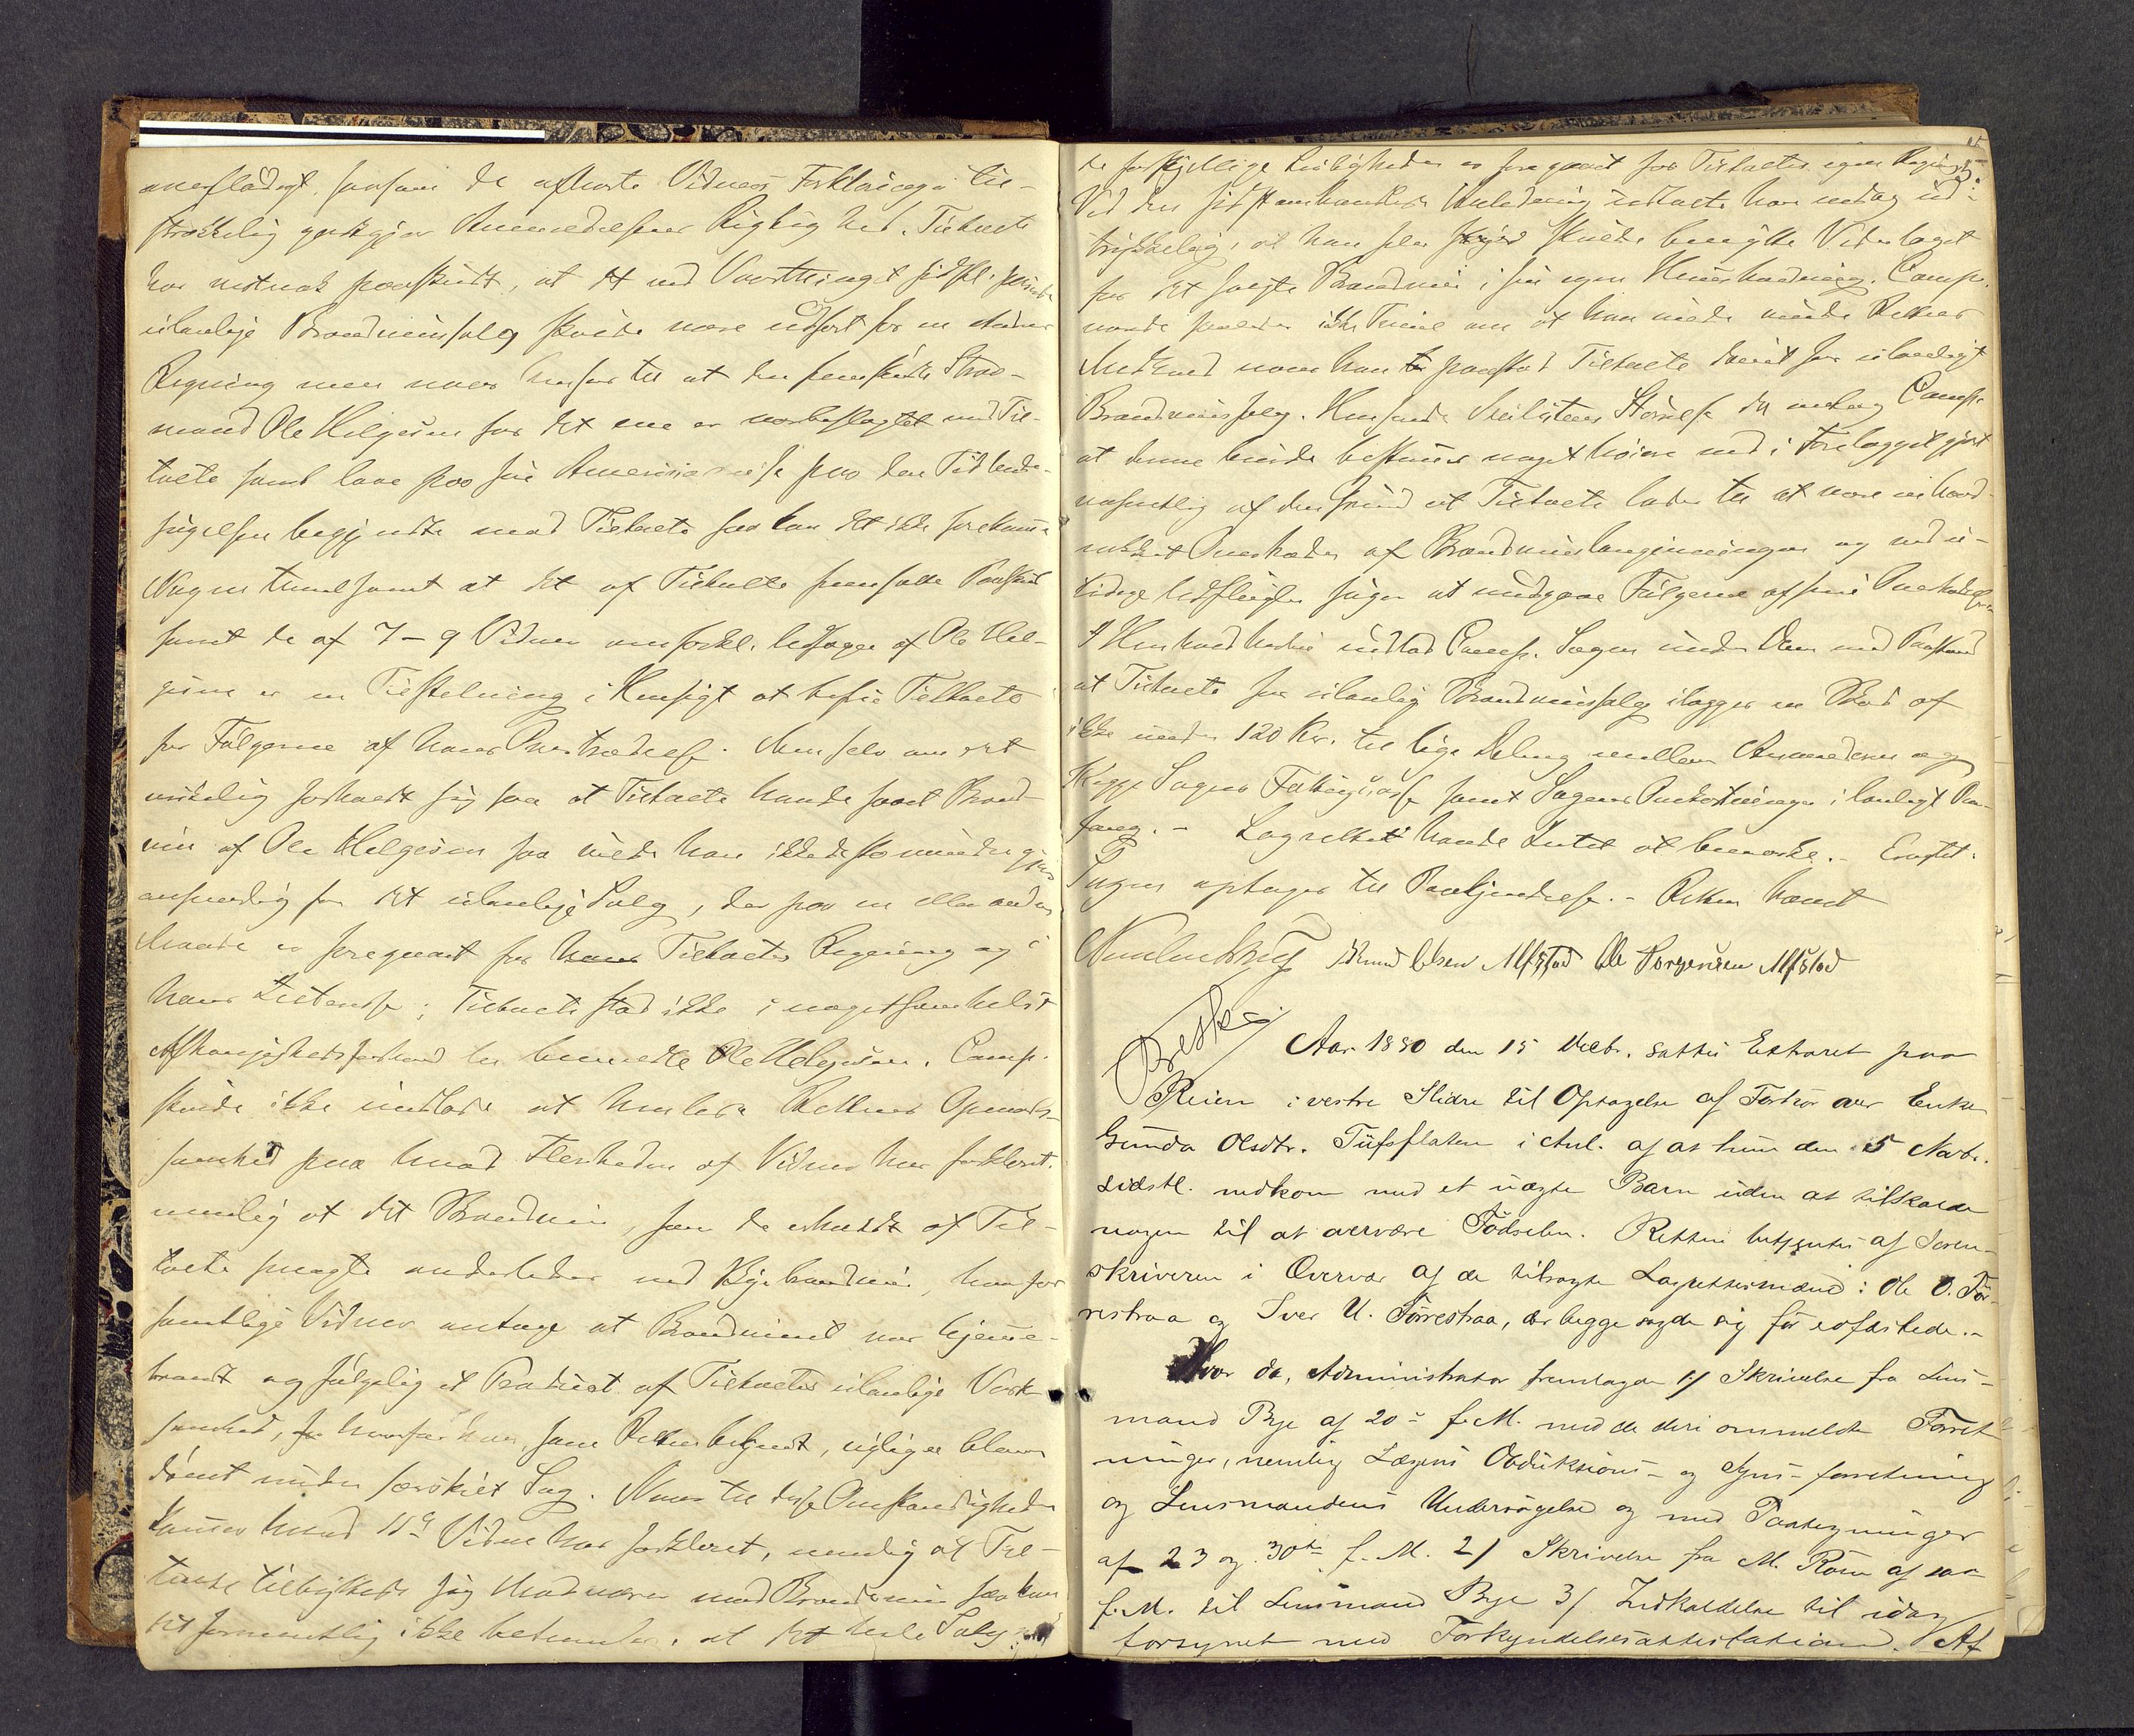 overflødigt, saasom de afhørte Vidners Forklaringer til-
strækkelig godtgjør Anmeldelsens Rigtighed. Tiltalte
har vistnok paaskudt, at det ved Voortthinget sidstl. 
ulovlige Brændevinssalg skulde være udført for en Andens
Regning men naar henses til at den paaskudte Straa-
mand Ole Helgesen for det ene er nærbeslægtet med Til-
talte samt laae paa sin Amerikareise paa den Tid Under-
søgelsen begyndte mod Tiltalte saa kan det ikke forekomme
Nogen tvivlsomt at det af Tiltalte fremsatte Paaskud
samt de af 7 - 9 Vidner omforkl. Udsagn af Ole Hel-
gesen er en Tilstelning i Hensigt at befri Tiltalte
for Følgerne af hans Overtrædelse. Men selv om det
virkelig forholdt sig saa at Tiltalte havde faaet Brænde-
vin af Ole Helgesen saa vilde han ikke desto mindre gjøres
ansvarlig for det ulovlige Salg, der paa en eller anden
Maade er foregaaet for hans Tiltaltes Regning og i
hans Interesse; Tiltalte stod ikke i nogetsomhelst
Afhængighedsforhold til bemeldte Ole Helgesen. Comp.
kunde ikke undlade at henlede Rettens Opmærk-
somhed paa hvad Flerheden af Vidner har forklaret.
nemlig at det Brændevin, som de erholdt af Til-
talte smagte anderledes end Byebrændevin, hvorfor
samtlige Vidner antage at Brændevinet var hjemme-
brændt og følgelig et Product af Tiltaltes ulovlige Virk-
somhed, for hvorfor han, som Retten bekjendt, nylig er bleven
dømt under særskilt Sag. Naar til disse Omstændigheder
kommer hvad 11te Vidne har forklaret, nemlig at Til-
talte tilbyttede sig Madvarer mod Brændevin saa kan
det formentlig ikke betvivles, at det hele Salg ved
de forskjellige Leiligheder er foregaaet for Tiltaltes egen Regning.
Ved den sidstomhandlede Anledning udtalte han endog ud-
trykkelig, at han selv skulde benytte Vederlaget
for det solgte Brændevin i sin egen Huusholdning. Comp.
nærede saaledes ikke Tvivl om at han vilde vinde Rettens
Medhold naar han paastod Tiltalte dømt for ulovligt
Brændevinssalg. Hensaaende Mulctens Størrelse da antog Comp.
at denne burde bestemmes noget høiere end i Forelægget gjort
navnlig af den Grund at Tiltalte lader til at være en haard-
nakket Overtræder af Brændevinslovgivningen og ved u-
tidige Udflugter søger at undgaae Følgerne af sine Overtrædelser
I Henhold hertil indlod Comp. Sagen under Dom med Paastand
at Tiltalte for ulovlig Brændevinssalg ilægges en Bod af
ikke under 120 Kr. til lige Deling mellem Anmelderen og
Vestre Slidre Fattigkasse samt Sagens Omkostninger i lovligt Om-
fang. - Laugrettet havde Intet at bemærke. - Eragtet:
Sagen optages til Paakjendelse. - Retten hævet
Knud Olsen Alfstad Ole Torgersen Alfstad
Beskr.
Aar 1880 den 15 Decbr. sattes Extraret paa
Reien i vestre Slidre til Optagelse af Forhør over Enke
Gunda Olsdtr. Tufsflaten i Anl. af at hun den 5 Novbr.
sidstl. nedkom med et uægte Barn uden at tilkalde
nogen til at overvære Fødselen. Retten betjentes af Soren-
skriveren i Overvær af de tilsagte Lagrettesmænd: Ole O. Tør-
restraa og Iver U. Tørrestraa, der begge sagde sig før edfæstede. -
Hvor da, Administrator fremlagde 1/ Skrivelse fra Lens-
mand Bye af 20de f. M. med de deri ommeldte Forret-
ninger, nemlig Lægens Obduktions- og Syns-forretning
og Lensmandens Undersøgelse og med Paategninger
af 23 og 30te f. M. 2/ Skrivelse fra M. Rom af 
f. M. til Lensmand Bye 3/ Indkaldelse til idag
forsynet med Forkyndelsesattestation. Af